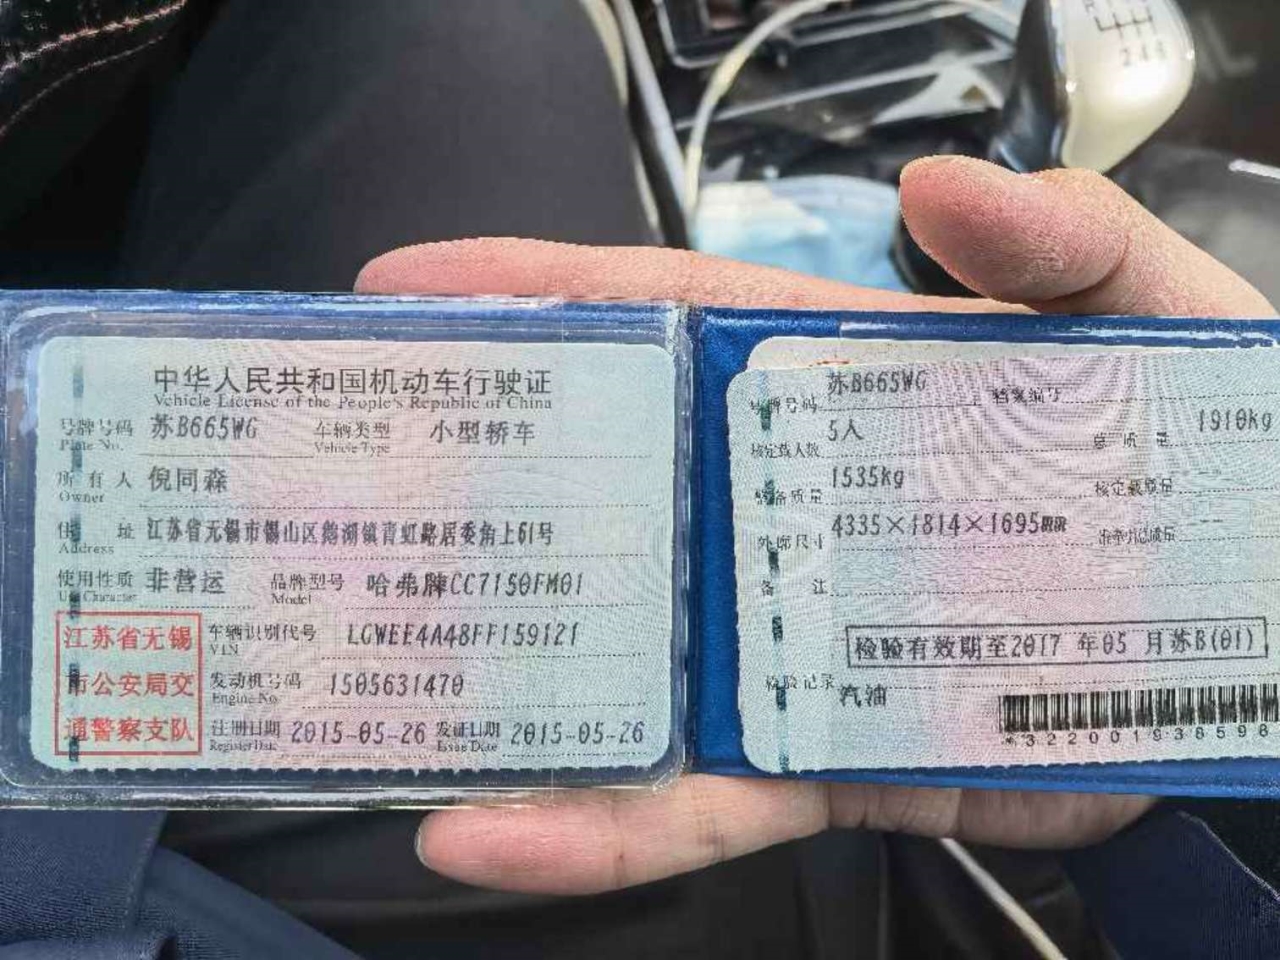 中华人民共和国机动车行驶证
Vehicle License of the People's Republic of China
号牌号码 苏B665WG 车辆类型 小型轿车
Plate No. Vehicle Type
所有人 倪同森
Owner
住址 江苏省无锡市锡山区鹅湖镇青虹路居委角上61号
Address
使用性质 非营运 品牌型号 哈弗牌CC7150FM01
Use Character Model
江苏省无锡
市公安局交
通警察支队
车辆识别代号 LGWEE4A48FF159121
VIN
发动机号码 1505631470
Engine No.
注册日期 2015-05-26 发证日期 2015-05-26
Register Date Issue Date
号牌号码 苏B665WG 档案编号
核定载人数 5人 总质量 1910kg
整备质量 1535kg 核定载质量
外廓尺寸 4335×1814×1695 准牵引总质量
备注
检验有效期至2017 年05 月苏B(01)
检验记录 汽油
*322001938598
R 1
2 4 6